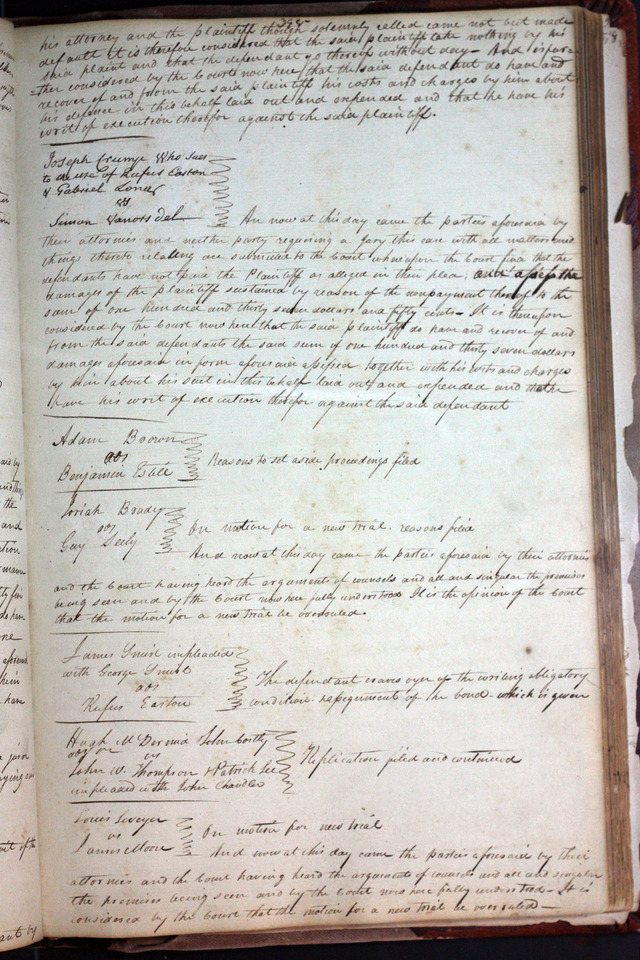 his attorney and the plaintiff though solemnly called came not but made
default it is therefore considered that the said plaintiff take nothing by his
said plaint and that the defendant go thereof without day - And it is fur
ther considered by the Court now here that the said defendant do have and
recover of and from the said plaintiff his costs and charges by him about
his defence in this behalf laid out and expended and that he have his
writ of execution therefor against the said plaintiff.
Joseph Crumpe Who sues
to the use of Rufus Easton
& Gabriel Long
vs
Simon Vanorsdel
An now at this day came the parties aforesaid by
their attornies and neither party requiring a Jury this case with all matters and
things thereto relating are submitted to the Court whereupon the Court find that the
defendants have not paid the Plaintiff as alleged in their plea and assess the
damages of the plaintiff sustained by reason of the nonpayment thereof to the
sum of one hundred and thirty seven dollars and fifty cents - It is thereupon
considered by the Court now here that the said plaintiff do have and recover of and
from the said defendants the said sum of one hundred and thirty seven dollars
damages aforesaid in form aforesaid assessed together with his costs and charges
by him about his suit in this behalf laid out and expended and that he
have his writ of execution therefor against the said defendant
Adam Brown
ads
Benjamin Estill
Reasons to set aside proceedings filed
Josiah Brady
ads
Guy Seely
On motion for a new trial. reasons filed
And now at this day came the parties aforesaid by their attornies
and the Court having heard the arguments of counsels and all and singular the premises
being seen and by the Court now here fully understood It is the opinion of the Court
that the motion for a new trial be overruled.
James Smirl impleaded
with George Smirl
ads
Rufus Easton
The defendant craves oyer of the writing obligatory
condition & assignment of the bond - which is given
Hugh McDermid John Costly
vs
John W. Thompson & Patrick Lee
impleaded with John Chandler
Replication filed and continued
Louis
vs
James Moore
On motion for new trial
And now at this day came the parties aforesaid by their
attornies and the Court having heard the arguments of counsels and all and singular
the premises being seen and by the Court now here fully understood - It is
considered by the Court that the motion for a new trial be overruled -